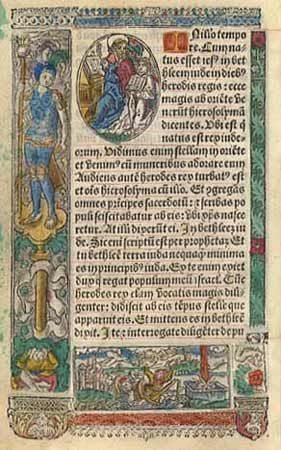 INillo tempo
re. Cum na
tus esset iesꝰ in bet
hleem iude in dieb⁹
herodis regis: ecce
magi ab oriẽte ve
nerũt hierosolymã
dicentes. Vbi est q̇
natus est rex iude-
orum. Vidimus enim stellam in oriẽte
et venimꝰ cũ muneribus adorare eum
Audiens autẽ herodes rex turbatꝰ est
et oĩs hierosolyma cũ illo. Et cõgregãs
omnes prĩcipes sacerdotũ: ⁊ scribas po
puli sciscitabatur ab eis: vbi xp̃s nasce
retur. At illi dixerũt ei. In bethleez iu
de. Sic eni scriptũ est per prophetaz Et
tu bethleẽ terra iuda nequaq̃ȝ minima
es in principibꝰ iuda. Ex te enim exiet
dux q̇ regat populum meũ israel. Tũc
herodes rex clam vocatis magis dili
genter: didicit ab eis tẽpus stelle que
apparuit eis. Et mittens eis in bethleẽ
dixit. Ite ⁊ interrogate diligẽter de pu